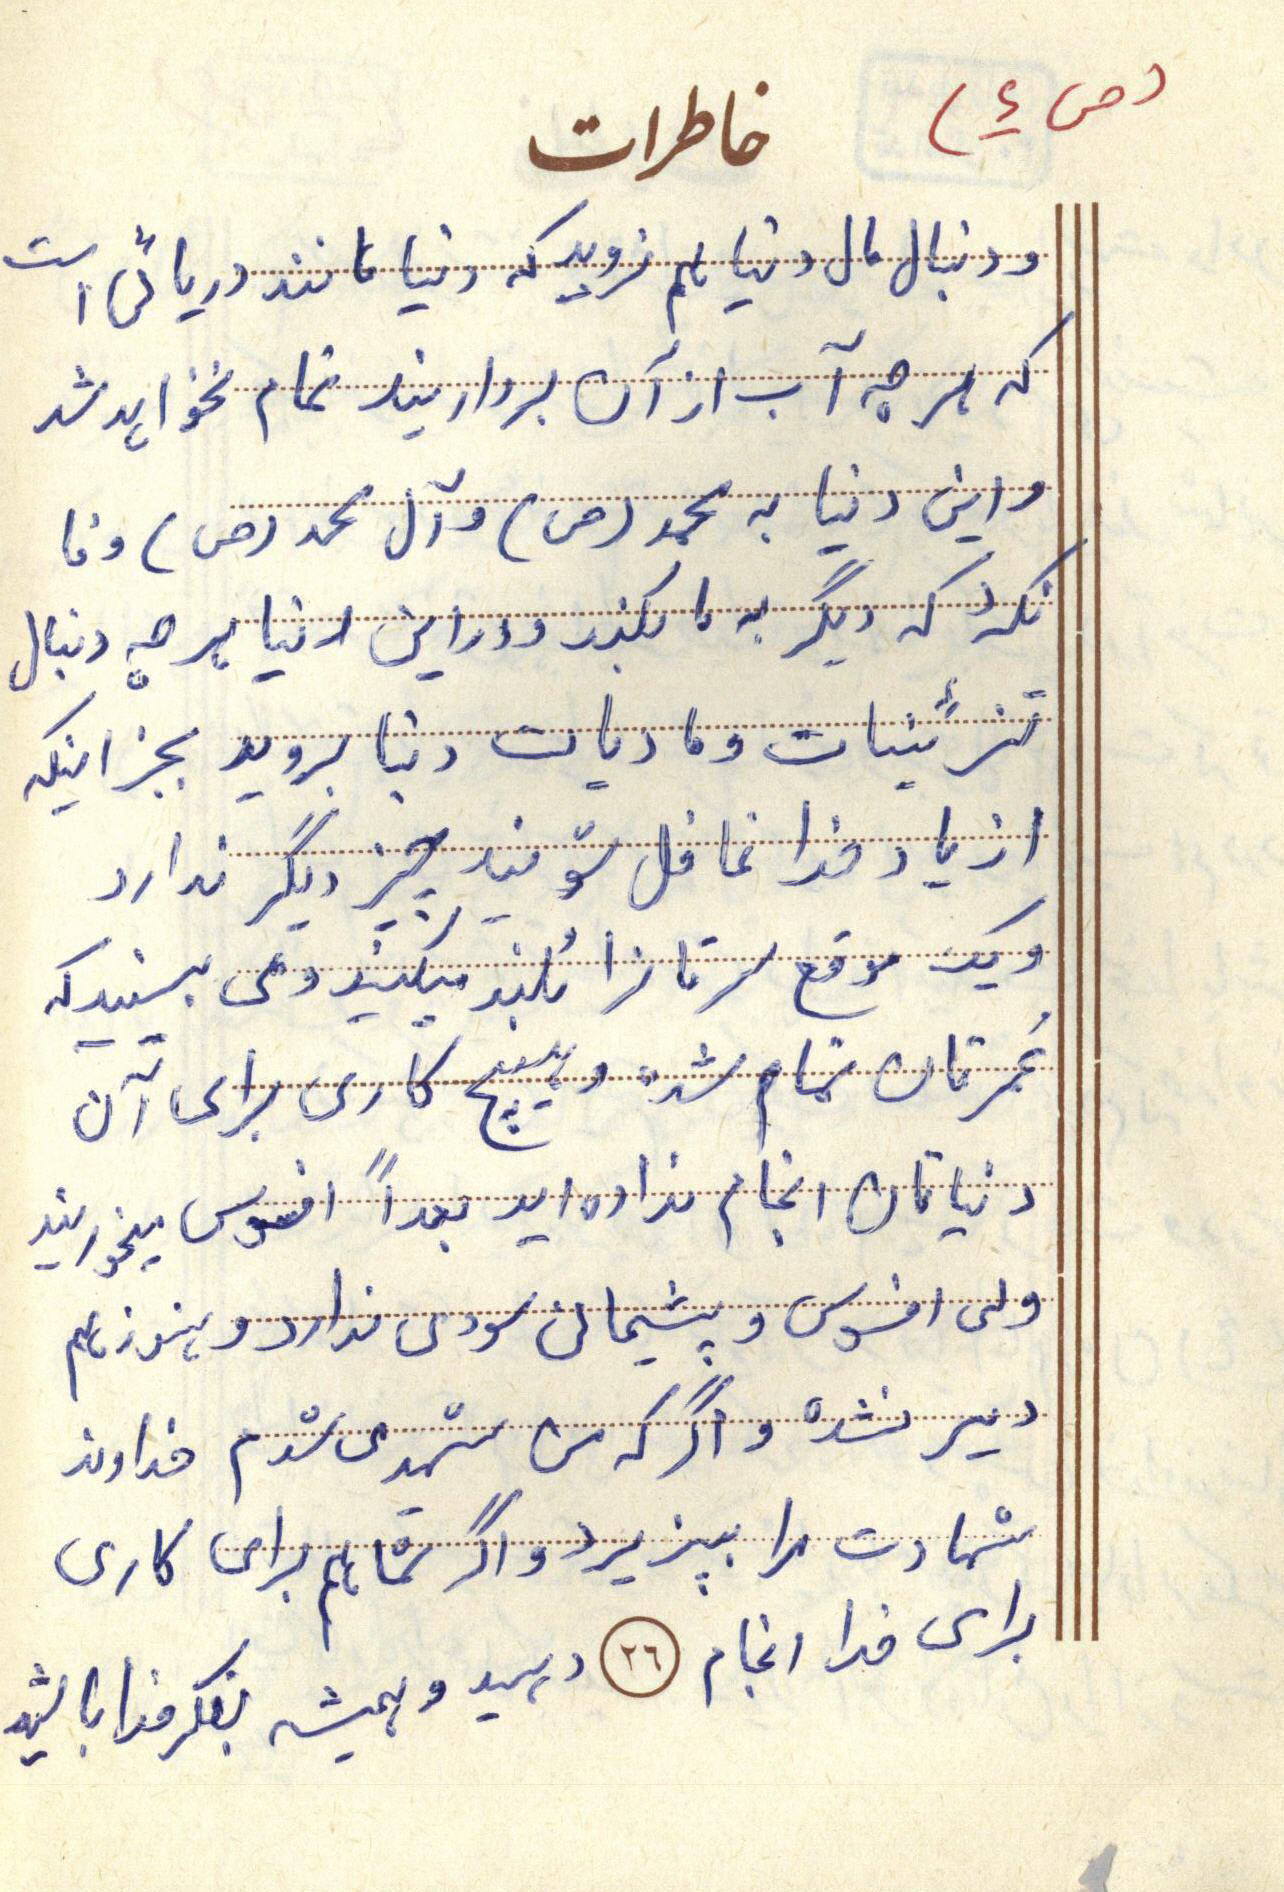 (ص ٤)
خاطرات
و دنبال مال دنیا هم نروید که دنیا مانند دریائی است
که هر چه آب از آن بردارید تمام نخواهد شد
و این دنیا به محمد (ص) و آل محمد (ص) وفا
نکرد که دیگر به ما بکند و در این دنیا هر چه دنبال
تزئینات و مادیات دنیا بروید بجز اینکه
از یاد خدا غافل شوئید چیز دیگر ندارد
و یک موقع سرتانرا بُلند میکنید و می بینید که
عُمرتان تمام شده و هیچ کاری برای آن
دنیاتان انجام نداده اید بعداً افسوس میخورید
ولی افسوس و پشیمانی سودی ندارد و هنوز هم
دیر نشده و اگر که من شهیدی شدم خداوند
شهادت مرا بپذیرد و اگر شما هم برای کاری
برای خدا انجام دهید و همیشه بفکر خدا باشید
٢٦